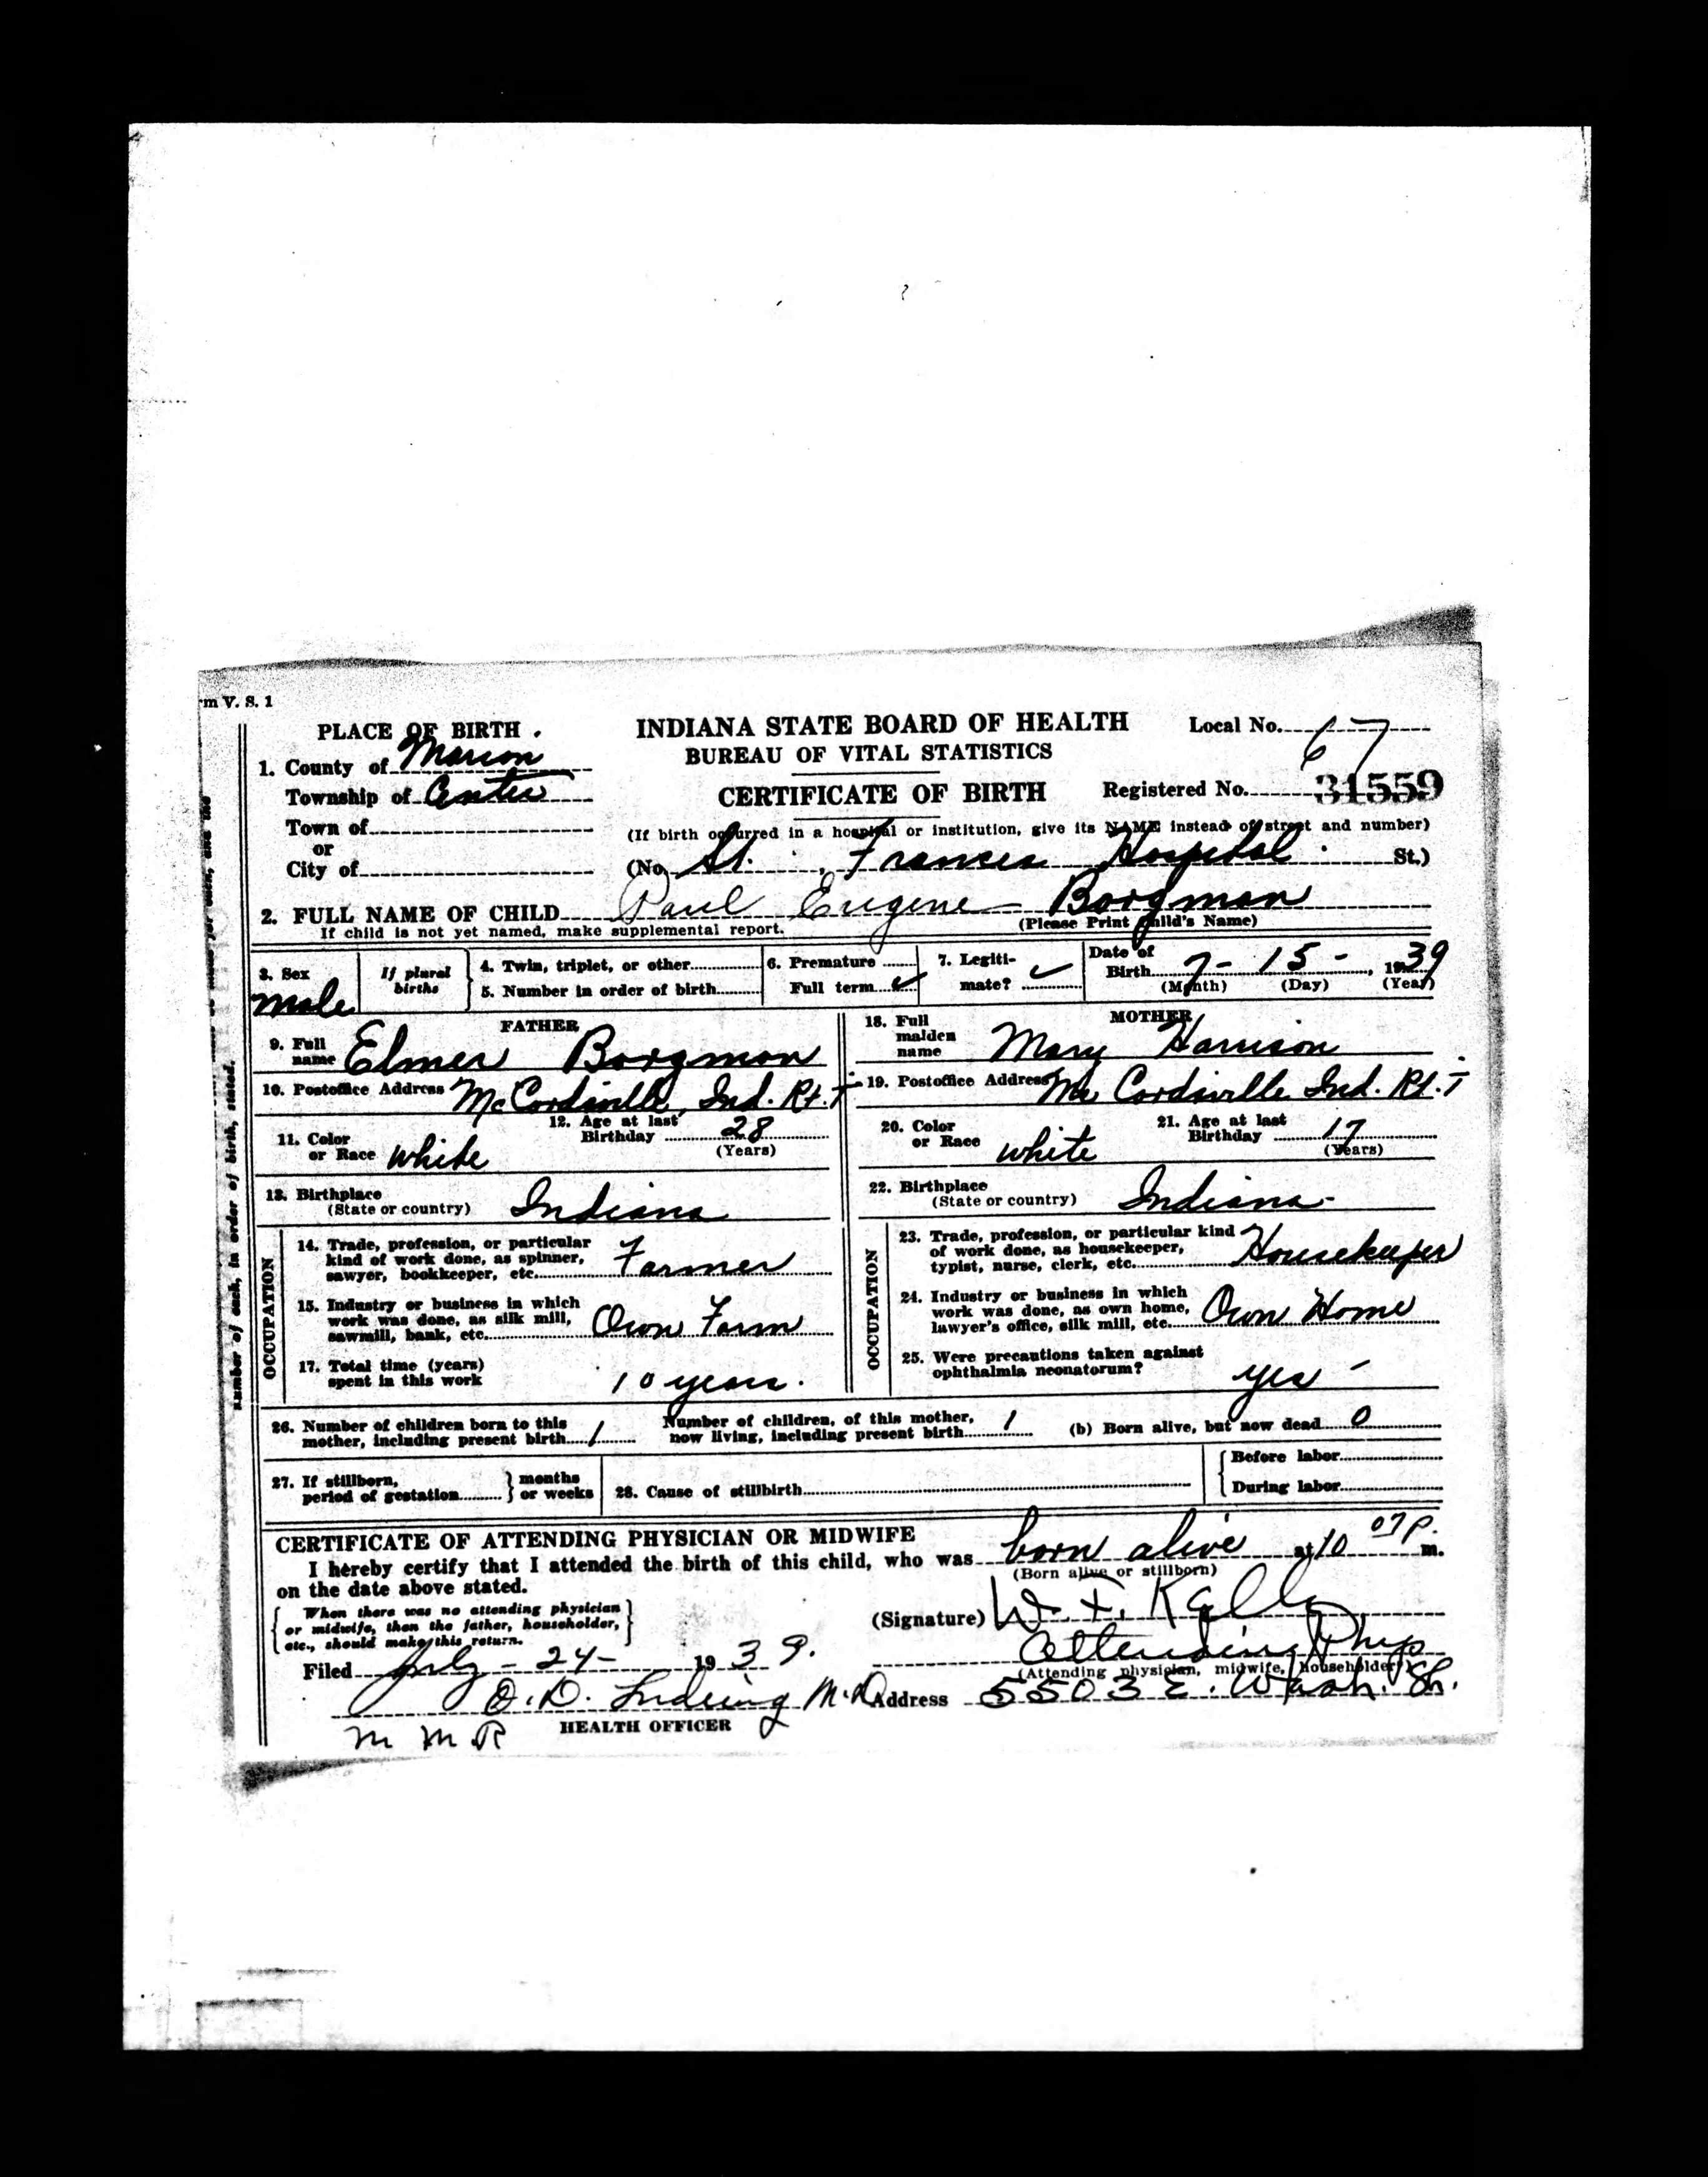 m V. S. 1
PLACE OF BIRTH
INDIANA STATE BOARD OF HEALTH
Local No. 67
BUREAU OF VITAL STATISTICS
1. County of Marion
Township of Center
CERTIFICATE OF BIRTH
Registered No. 31559
Town of
or
City of
(If birth occurred in a hospital or institution, give its NAME instead of street and number)
(No. St. Frances Hospital St.)
2. FULL NAME OF CHILD Paul Eugene Borgman
If child is not yet named, make supplemental report.
(Please Print Child's Name)
3. Sex Male
If plural births
4. Twin, triplet, or other
5. Number in order of birth
6. Premature
Full term ✓
7. Legiti-
mate? ✓
Date of
Birth 7 - 15 - , 1939
(Month) (Day) (Year)
FATHER
9. Full
name Elmer Borgman
10. Postoffice Address McCordsville, Ind. Rt. 1
11. Color
or Race white
12. Age at last
Birthday 28
(Years)
13. Birthplace
(State or country) Indiana
OCCUPATION
14. Trade, profession, or particular
kind of work done, as spinner,
sawyer, bookkeeper, etc. Farmer
15. Industry or business in which
work was done, as silk mill,
sawmill, bank, etc. Own Farm
17. Total time (years)
spent in this work 10 years.
MOTHER
18. Full
maiden
name Mary Harrison
19. Postoffice Address Mc Cordsville Ind. Rt. 1
20. Color
or Race white
21. Age at last
Birthday 17
(Years)
22. Birthplace
(State or country) Indiana-
OCCUPATION
23. Trade, profession, or particular kind
of work done, as housekeeper,
typist, nurse, clerk, etc. Housekeeper
24. Industry or business in which
work was done, as own home,
lawyer's office, silk mill, etc. Own Home
25. Were precautions taken against
ophthalmia neonatorum? yes -
26. Number of children born to this
mother, including present birth 1
Number of children, of this mother,
now living, including present birth 1
(b) Born alive, but now dead 0
27. If stillborn,
period of gestation
months
or weeks
28. Cause of stillbirth
Before labor
During labor
CERTIFICATE OF ATTENDING PHYSICIAN OR MIDWIFE
I hereby certify that I attended the birth of this child, who was born alive at 10 07 P. m.
(Born alive or stillborn)
on the date above stated.
When there was no attending physician
or midwife, then the father, householder,
etc., should make this return.
(Signature) W. F. Kelly
Attending Phys
(Attending physician, midwife, householder)
Filed July - 24 - 1939.
O. D. M.D.
HEALTH OFFICER
Address 5503 E. Wash. St.
M M R
number of each, in order of birth, stated.